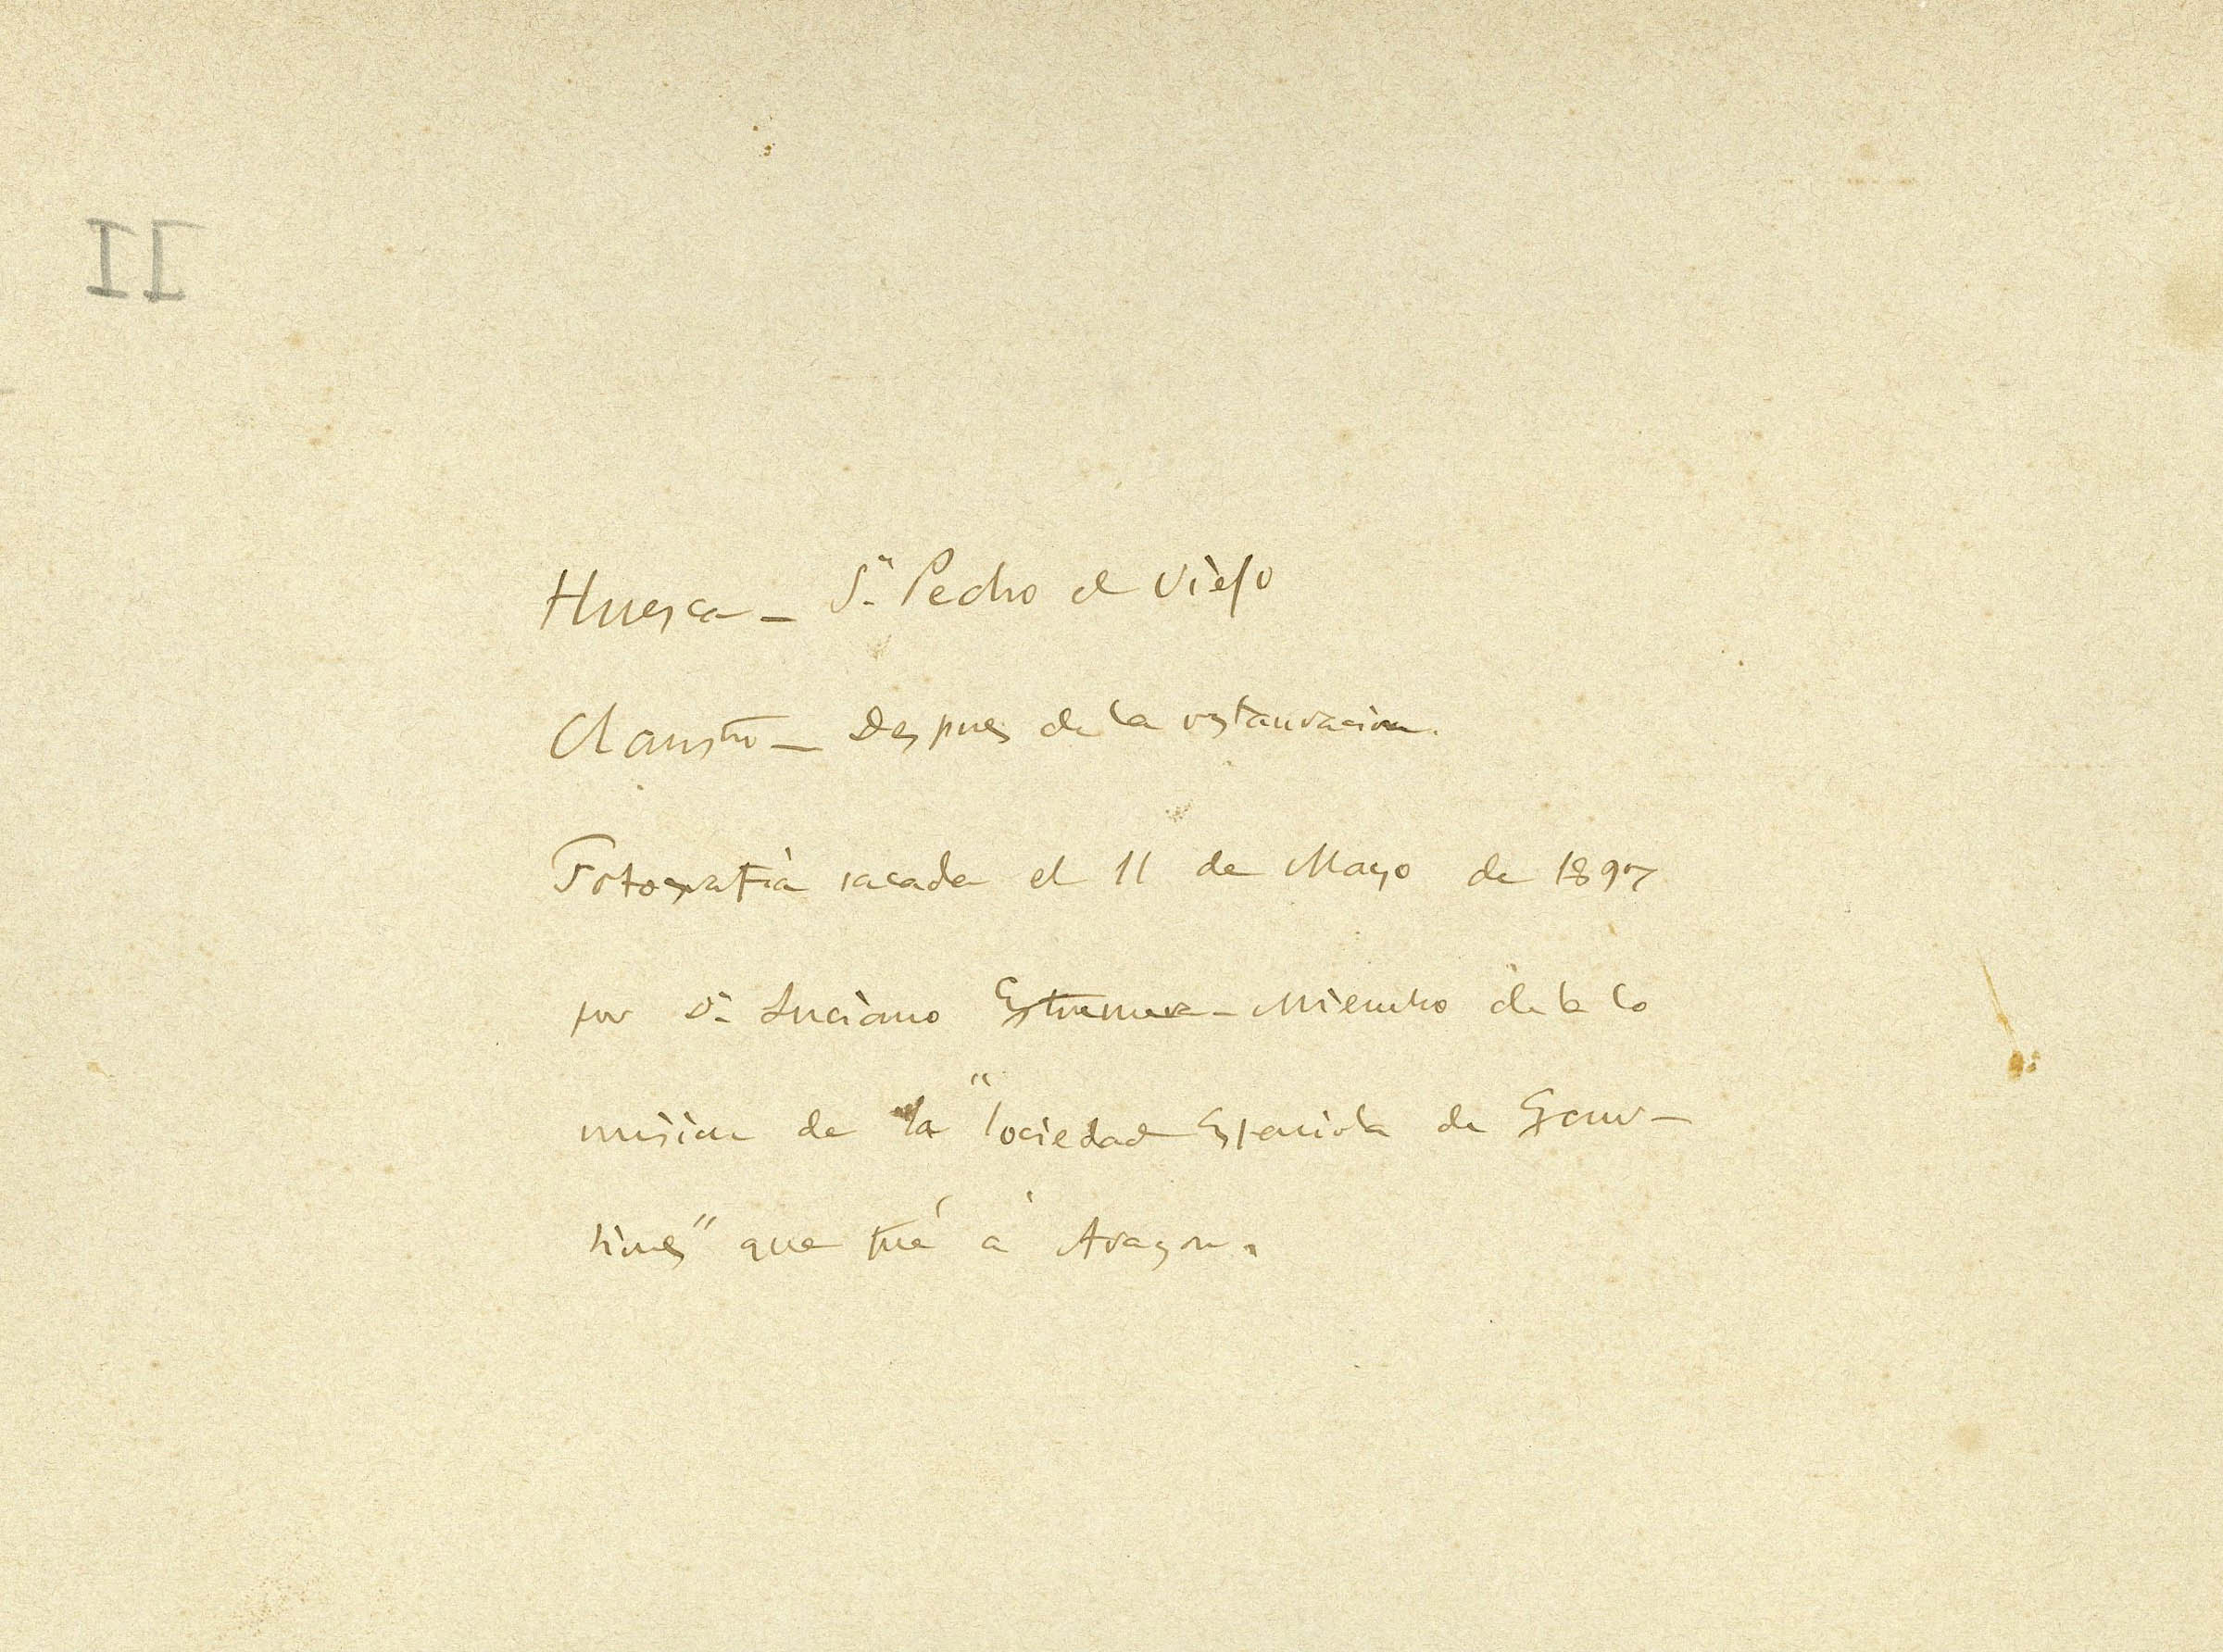 II
Huesca - Sn. Pedro el Viejo
Claustro - Despues de la restauracion.
Fotografia sacada el 11 de Mayo de 1897
por Dn. Luciano Estremera - Miembro de la Co
mision de la "Sociedad Española de Escur-
siones" que fué á Aragon.